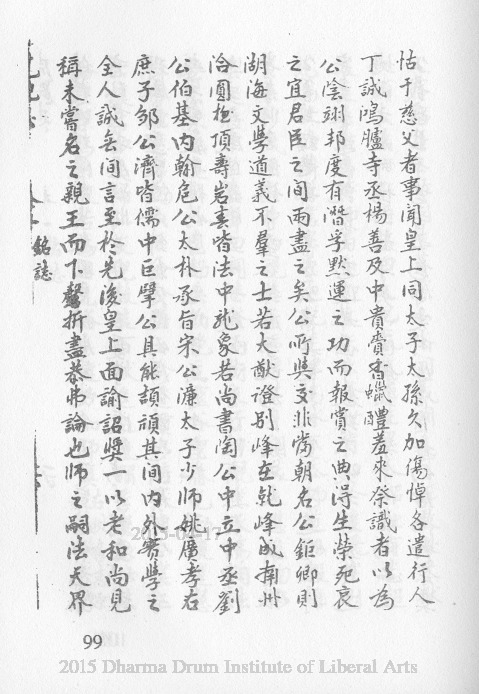 怙于慈父者事聞皇上同太子太孫久加傷悼各遣行人
丁誠鴻臚寺丞楊善及中貴賫香蠟醴羞來祭識者以為
公陰翊邦度有潛孚默運之功而報賞之典得生榮死哀
之宜君臣之間兩盡之矣公所與交非當朝名公鉅卿則
湖海文學道義不羣之士若大猷證別峰在乾峰成南州
洽圓極頂壽岩春皆法中龍象若尚書陶公中立中丞劉
公伯基內翰危公太朴承旨宋公濂太子少師姚廣孝右
庶子鄒公濟皆儒中巨擘公具能頡頏其間內外賓學之
全人誠無間言至於先後皇上面諭詔獎一以老和尚見
稱未嘗名之親王而下罄折盡恭弗論也師之嗣法天界
銘誌
99
2015-04-17
2015 Dharma Drum Institute of Liberal Arts